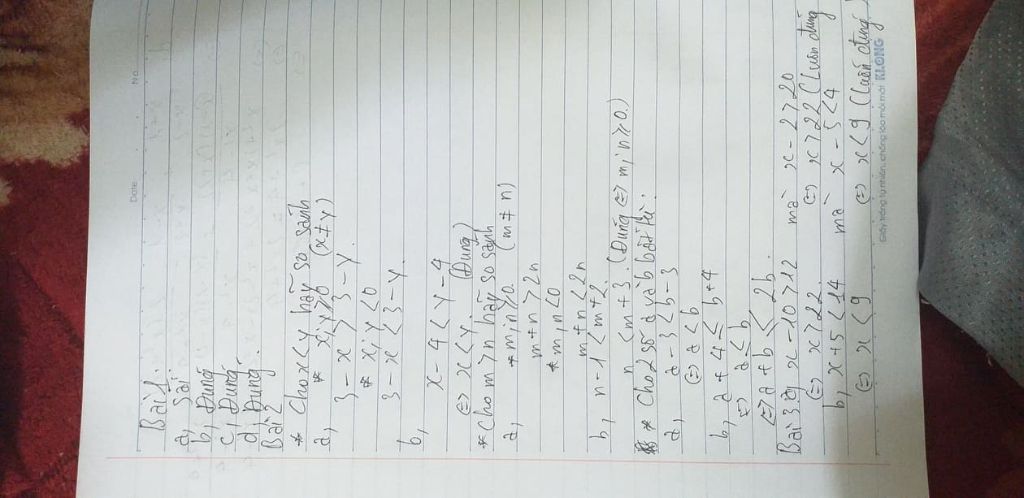 No.
Date
Bài 1.
a, Sai.
b, Đúng
c, Đúng
d, Đúng.
Bài 2
* Cho x < y hãy so sánh
a, * x; y ≥ 0 (x ≠ y)
3 - x > 3 - y
* x; y < 0
3 - x < 3 - y.
b, x - 4 < y - 4
(=) x < y. (Đúng)
* Cho m > n hãy so sánh
a, * m; n ≥ 0. (m ≠ n)
m + n > 2n
* m, n < 0
m + n < 2n
b, n - 1 < m + 2
n < m + 3. (Đúng (=) m; n ≥ 0.)
* Cho 2 số a và b bất kì:
a, a - 3 < b - 3
(=) a < b
b, a + 4 ≤ b + 4
(=) a ≤ b
(=) a + b ≤ 2b.
Bài 3. a, x - 10 > 12 mà x - 2 > 20
(=) x > 22 (=) x > 22 (Luôn đúng
b, x + 5 < 14 mà x - 5 < 4
(=) x < 9 (=) x < 9 (Luôn đúng)
Giấy trắng tự nhiên, chống lóa mỏi mắt KLONG